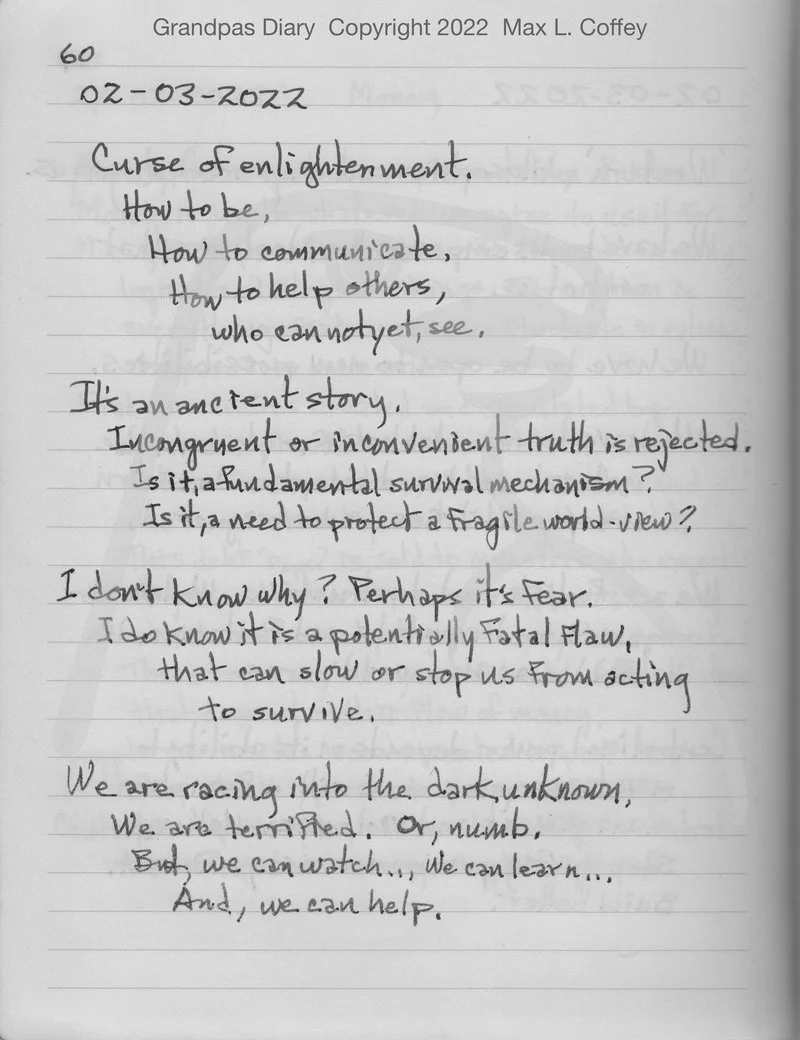 Grandpas Diary Copyright 2022 Max L. Coffey
60
02-03-2022
Curse of enlightenment.
How to be,
How to communicate,
How to help others,
who can not yet, see.
It's an ancient story.
Incongruent or inconvenient truth is rejected.
Is it, a fundamental survival mechanism?
Is it, a need to protect a fragile world-view?
I don't know why? Perhaps it's fear.
I do know it is a potentially fatal flaw,
that can slow or stop us from acting
to survive.
We are racing into the dark, unknown,
We are terrified. Or, numb.
But, we can watch..., We can learn...
And, we can help.